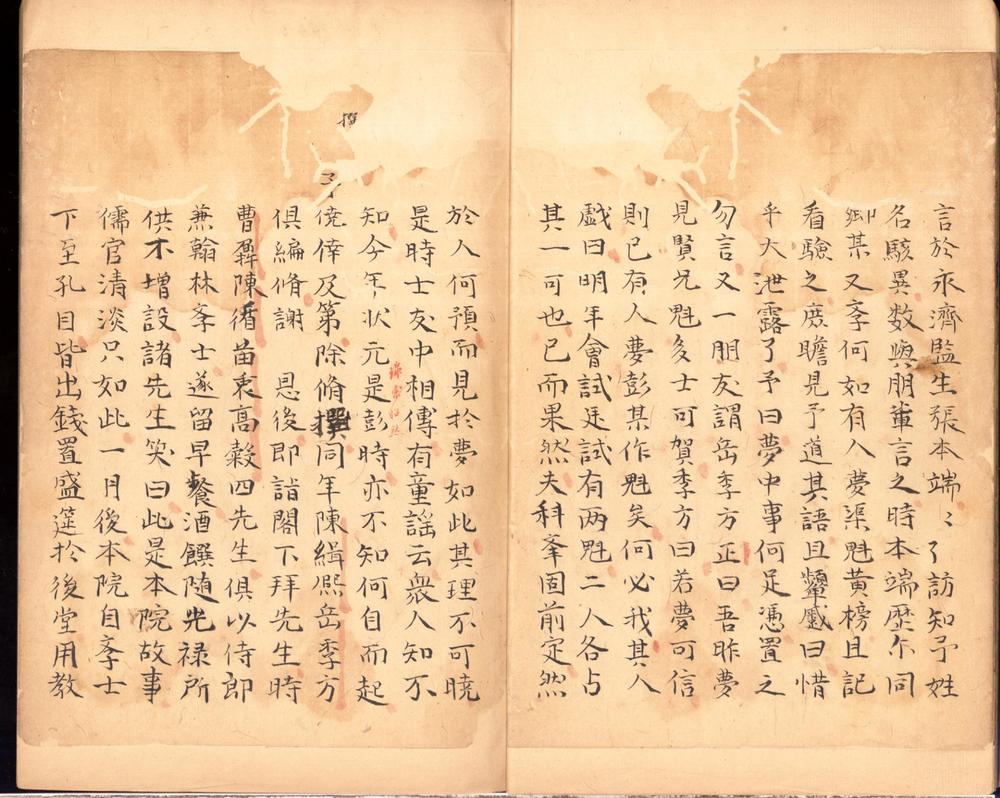 言於永濟監生張本端〻了訪知予姓
名駭異数與朋輩言之時本端歷尓同
鄉某又斈何如有人夢渠魁黃榜且記
看驗之庶瞻見予道其語且顰蹙曰惜
乎大泄露了予曰夢中事何足憑置之
勿言又一朋友謂岳季方正曰吾昨夢
見賢兄魁多士可賀季方曰若夢可信
則已有人夢彭某作魁矣何必我其人
戲曰明年會試廷試有两魁二人各占
其一可也已而果然夫科固前定然
於人何預而見於夢如此其理不可曉
是時士友中相傳有童謡云衆人知不
知今年状元是彭時亦不知何自而起
予僥倖及第除脩撰同年陳緝熈岳季方
撰
俱編脩謝 恩後即詣閣下拜先生時
曹鼐陳循苗衷高穀四先生俱以侍郎
兼翰林斈士遂留早餐酒饌随光禄所
供不增設諸先生笑曰此是本院故事
儒官清淡只如此一月後本院自斈士
下至孔目皆出錢置盛筵於後堂用教